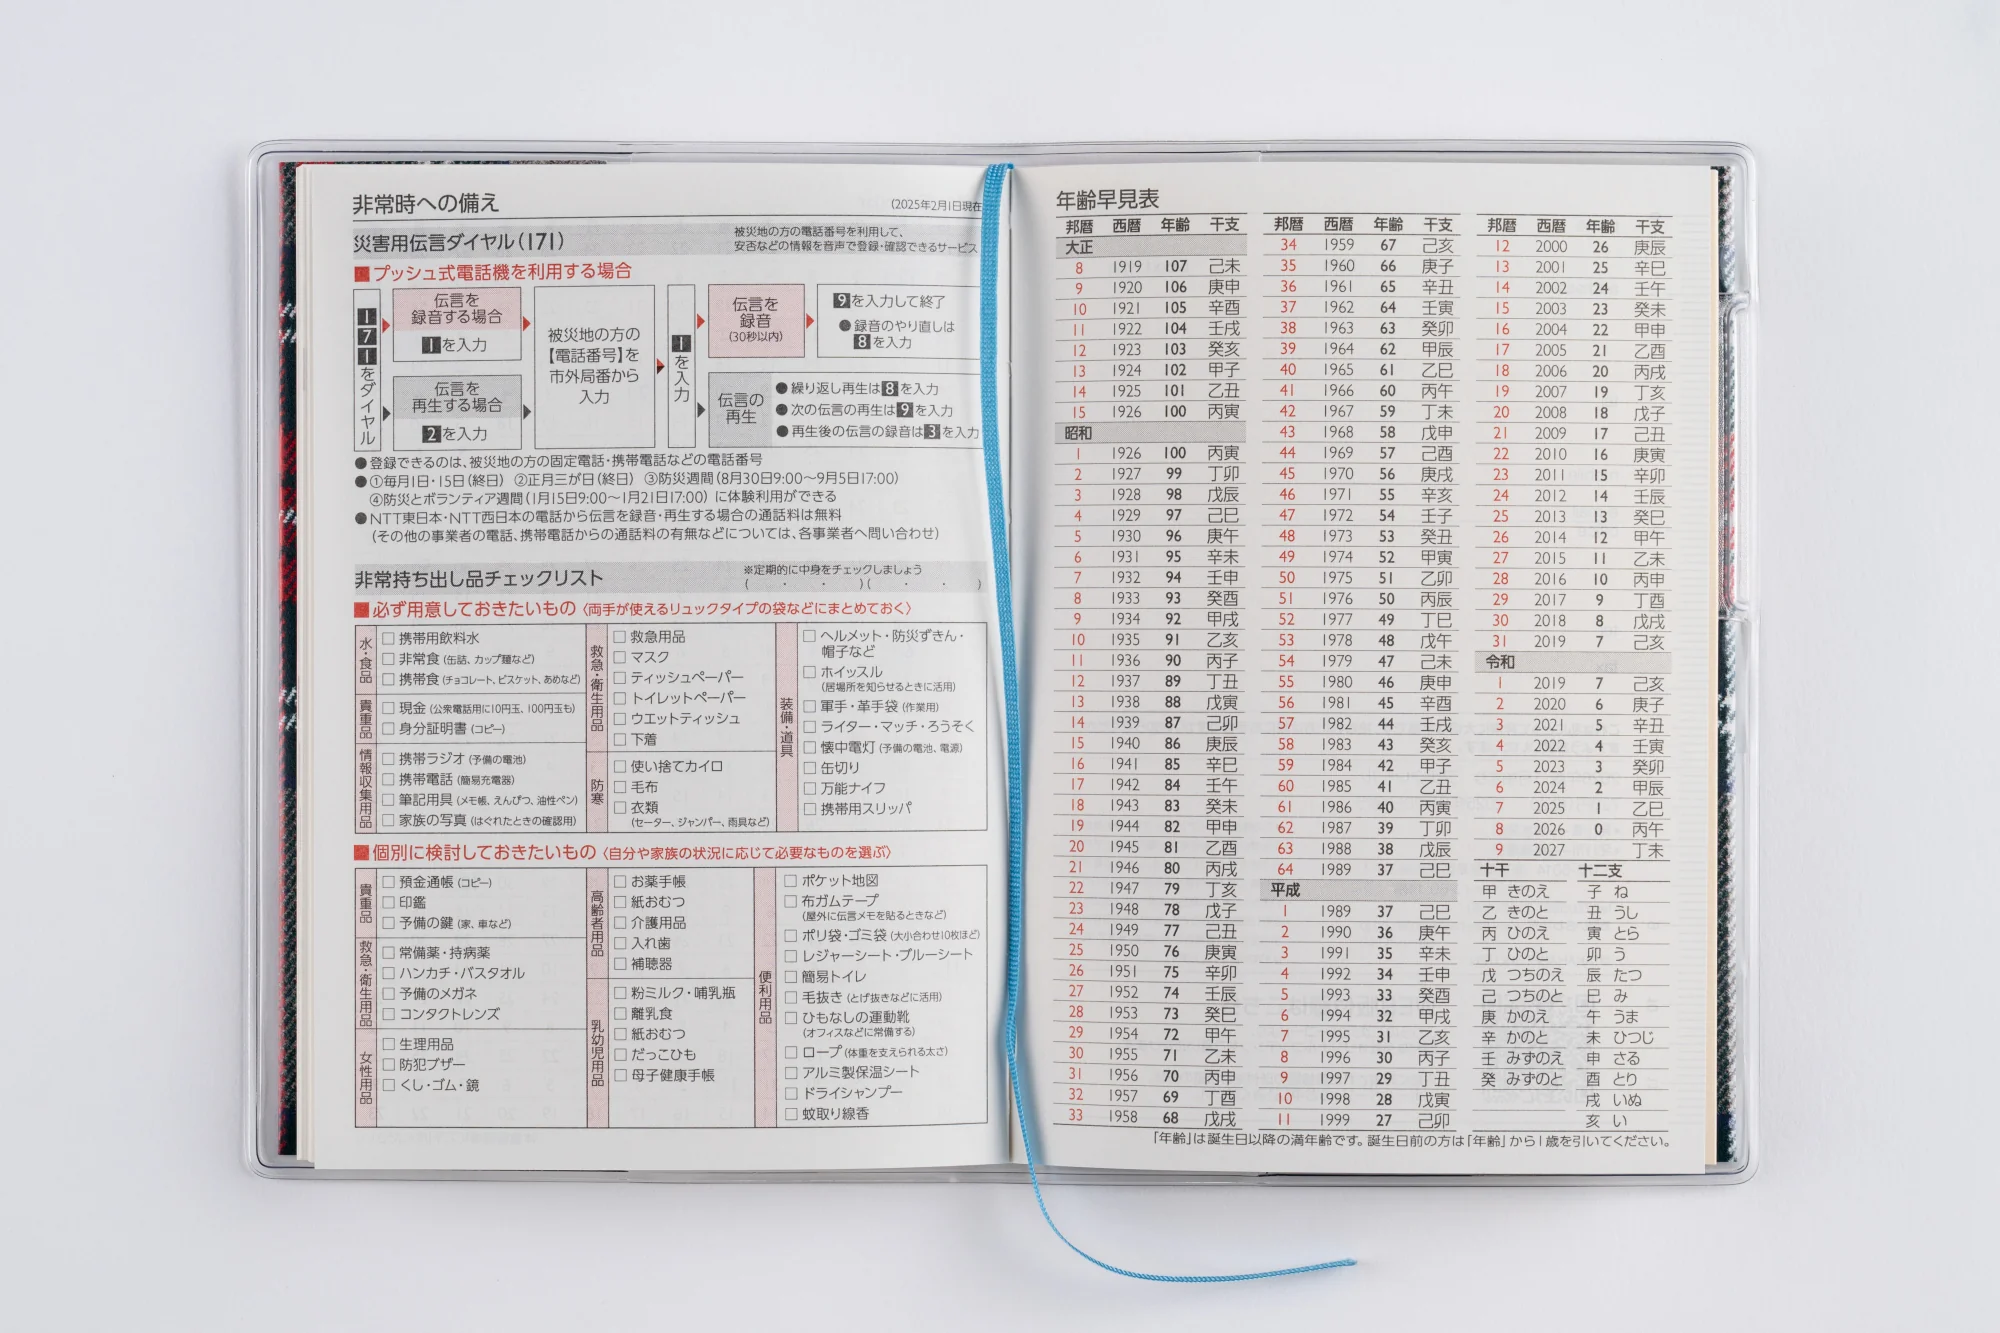 非常時への備え
(2025年2月1日現在
災害用伝言ダイヤル(171)
被災地の方の電話番号を利用して、
安否などの情報を音声で登録・確認できるサービス
■プッシュ式電話機を利用する場合
171をダイヤル
伝言を
録音する場合
1を入力
伝言を
再生する場合
2を入力
被災地の方の
【電話番号】を
市外局番から
入力
1を入力
伝言を
録音
(30秒以内)
9を入力して終了
●録音のやり直しは
8を入力
伝言の
再生
●繰り返し再生は8を入力
●次の伝言の再生は9を入力
●再生後の伝言の録音は3を入力
●登録できるのは、被災地の方の固定電話・携帯電話などの電話番号
●①毎月1日・15日(終日) ②正月三が日(終日) ③防災週間(8月30日9:00〜9月5日17:00)
④防災とボランティア週間(1月15日9:00〜1月21日17:00) に体験利用ができる
●NTT東日本・NTT西日本の電話から伝言を録音・再生する場合の通話料は無料
(その他の事業者の電話、携帯電話からの通話料の有無などについては、各事業者へ問い合わせ)
非常持ち出し品チェックリスト
※定期的に中身をチェックしましょう
( ・ ・ )( ・ ・ )
■必ず用意しておきたいもの〈両手が使えるリュックタイプの袋などにまとめておく〉
水・食品
□携帯用飲料水
□非常食(缶詰、カップ麺など)
□携帯食(チョコレート、ビスケット、あめなど)
貴重品
□現金(公衆電話用に10円玉、100円玉も)
□身分証明書(コピー)
情報収集用品
□携帯ラジオ(予備の電池)
□携帯電話(簡易充電器)
□筆記用具(メモ帳、えんぴつ、油性ペン)
□家族の写真(はぐれたときの確認用)
救急・衛生用品
□救急用品
□マスク
□ティッシュペーパー
□トイレットペーパー
□ウエットティッシュ
□下着
防寒
□使い捨てカイロ
□毛布
□衣類
(セーター、ジャンパー、雨具など)
装備・道具
□ヘルメット・防災ずきん・
帽子など
□ホイッスル
(居場所を知らせるときに活用)
□軍手・革手袋(作業用)
□ライター・マッチ・ろうそく
□懐中電灯(予備の電池、電源)
□缶切り
□万能ナイフ
□携帯用スリッパ
■個別に検討しておきたいもの〈自分や家族の状況に応じて必要なものを選ぶ〉
貴重品
□預金通帳(コピー)
□印鑑
□予備の鍵(家、車など)
救急・衛生用品
□常備薬・持病薬
□ハンカチ・バスタオル
□予備のメガネ
□コンタクトレンズ
女性用品
□生理用品
□防犯ブザー
□くし・ゴム・鏡
高齢者用品
□お薬手帳
□紙おむつ
□介護用品
□入れ歯
□補聴器
乳幼児用品
□粉ミルク・哺乳瓶
□離乳食
□紙おむつ
□だっこひも
□母子健康手帳
便利用品
□ポケット地図
□布ガムテープ
(屋外に伝言メモを貼るときなど)
□ポリ袋・ゴミ袋(大小合わせ10枚ほど)
□レジャーシート・ブルーシート
□簡易トイレ
□毛抜き(とげ抜きなどに活用)
□ひもなしの運動靴
(オフィスなどに常備する)
□ロープ(体重を支えられる太さ)
□アルミ製保温シート
□ドライシャンプー
□蚊取り線香
年齢早見表
邦暦 西暦 年齢 干支
大正
8 1919 107 己未
9 1920 106 庚申
10 1921 105 辛酉
11 1922 104 壬戌
12 1923 103 癸亥
13 1924 102 甲子
14 1925 101 乙丑
15 1926 100 丙寅
昭和
1 1926 100 丙寅
2 1927 99 丁卯
3 1928 98 戊辰
4 1929 97 己巳
5 1930 96 庚午
6 1931 95 辛未
7 1932 94 壬申
8 1933 93 癸酉
9 1934 92 甲戌
10 1935 91 乙亥
11 1936 90 丙子
12 1937 89 丁丑
13 1938 88 戊寅
14 1939 87 己卯
15 1940 86 庚辰
16 1941 85 辛巳
17 1942 84 壬午
18 1943 83 癸未
19 1944 82 甲申
20 1945 81 乙酉
21 1946 80 丙戌
22 1947 79 丁亥
23 1948 78 戊子
24 1949 77 己丑
25 1950 76 庚寅
26 1951 75 辛卯
27 1952 74 壬辰
28 1953 73 癸巳
29 1954 72 甲午
30 1955 71 乙未
31 1956 70 丙申
32 1957 69 丁酉
33 1958 68 戊戌
邦暦 西暦 年齢 干支
34 1959 67 己亥
35 1960 66 庚子
36 1961 65 辛丑
37 1962 64 壬寅
38 1963 63 癸卯
39 1964 62 甲辰
40 1965 61 乙巳
41 1966 60 丙午
42 1967 59 丁未
43 1968 58 戊申
44 1969 57 己酉
45 1970 56 庚戌
46 1971 55 辛亥
47 1972 54 壬子
48 1973 53 癸丑
49 1974 52 甲寅
50 1975 51 乙卯
51 1976 50 丙辰
52 1977 49 丁巳
53 1978 48 戊午
54 1979 47 己未
55 1980 46 庚申
56 1981 45 辛酉
57 1982 44 壬戌
58 1983 43 癸亥
59 1984 42 甲子
60 1985 41 乙丑
61 1986 40 丙寅
62 1987 39 丁卯
63 1988 38 戊辰
64 1989 37 己巳
平成
1 1989 37 己巳
2 1990 36 庚午
3 1991 35 辛未
4 1992 34 壬申
5 1993 33 癸酉
6 1994 32 甲戌
7 1995 31 乙亥
8 1996 30 丙子
9 1997 29 丁丑
10 1998 28 戊寅
11 1999 27 己卯
邦暦 西暦 年齢 干支
12 2000 26 庚辰
13 2001 25 辛巳
14 2002 24 壬午
15 2003 23 癸未
16 2004 22 甲申
17 2005 21 乙酉
18 2006 20 丙戌
19 2007 19 丁亥
20 2008 18 戊子
21 2009 17 己丑
22 2010 16 庚寅
23 2011 15 辛卯
24 2012 14 壬辰
25 2013 13 癸巳
26 2014 12 甲午
27 2015 11 乙未
28 2016 10 丙申
29 2017 9 丁酉
30 2018 8 戊戌
31 2019 7 己亥
令和
1 2019 7 己亥
2 2020 6 庚子
3 2021 5 辛丑
4 2022 4 壬寅
5 2023 3 癸卯
6 2024 2 甲辰
7 2025 1 乙巳
8 2026 0 丙午
9 2027 丁未
十干 十二支
甲 きのえ 子 ね
乙 きのと 丑 うし
丙 ひのえ 寅 とら
丁 ひのと 卯 う
戊 つちのえ 辰 たつ
己 つちのと 巳 み
庚 かのえ 午 うま
辛 かのと 未 ひつじ
壬 みずのえ 申 さる
癸 みずのと 酉 とり
戌 いぬ
亥 い
「年齢」は誕生日以降の満年齢です。誕生日前の方は「年齢」から1歳を引いてください。